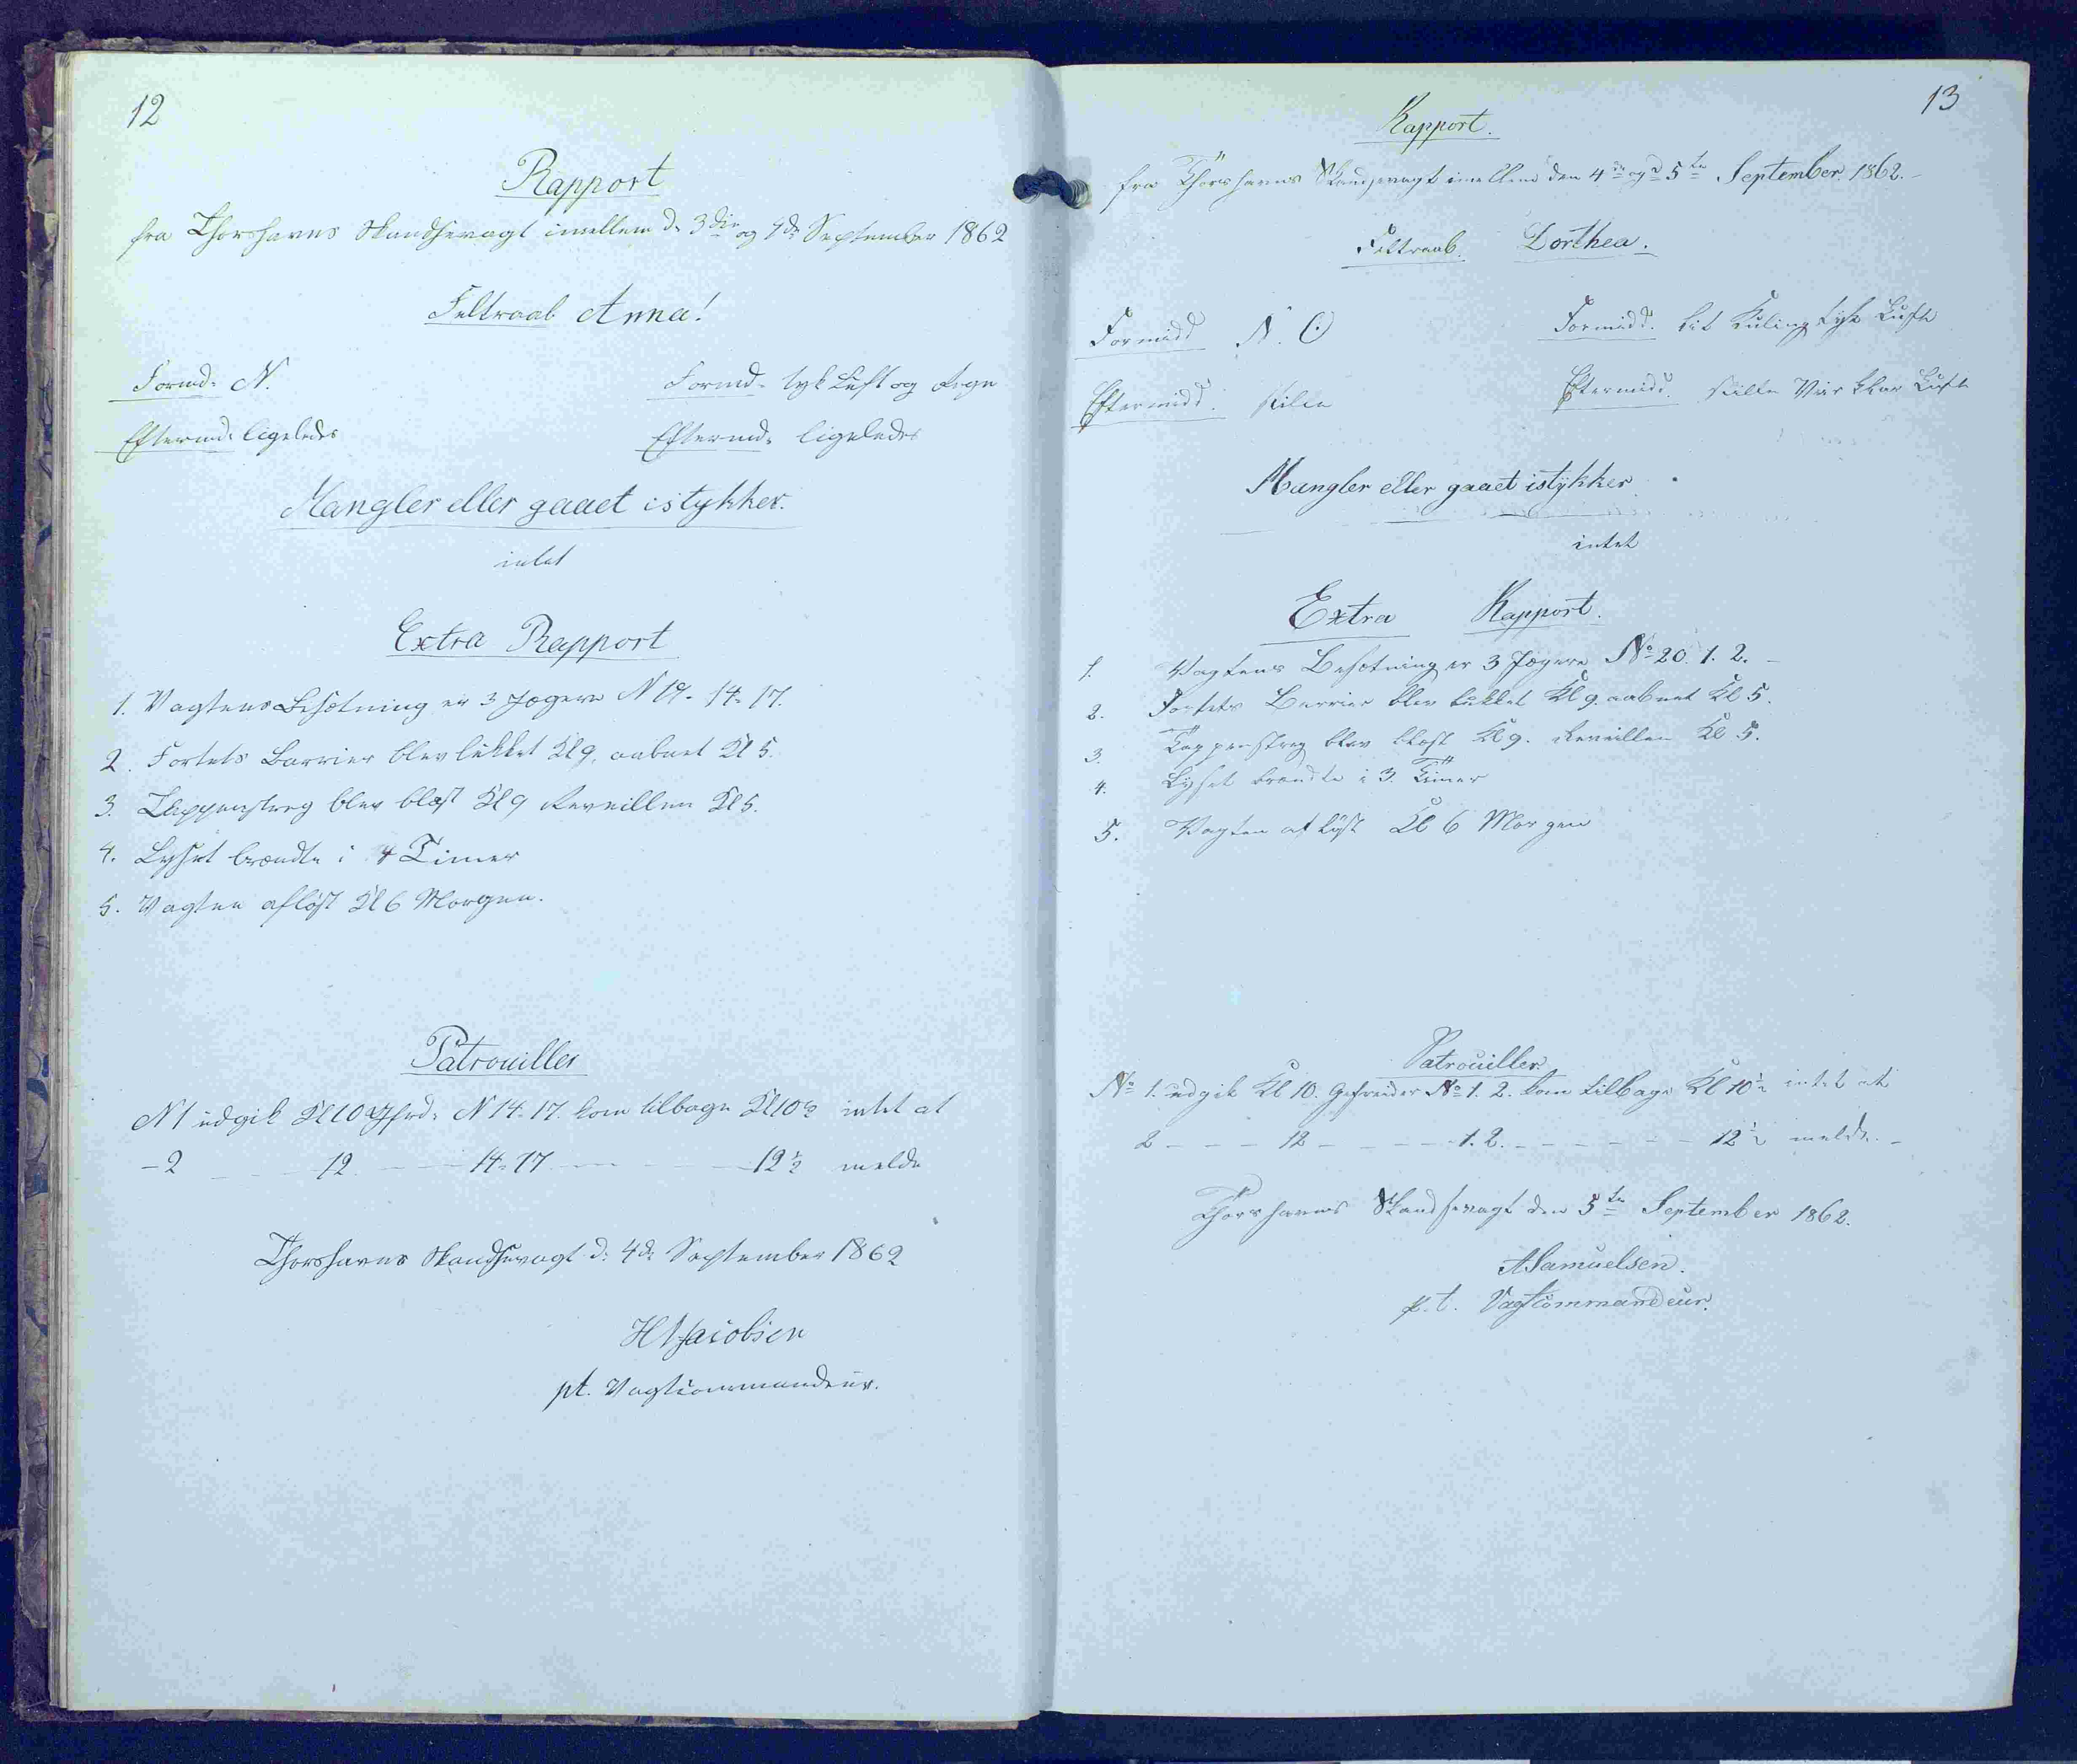 12
Rapport
fra Thorshavns Skandsevagt imellem d. 3die og 4de September 1862
Feltraab Anna!
Formd: N. Formd: tyk Luft og Regn
Eftermd: ligeledes Eftermd: ligeledes
Mangler eller gaaet istykker.
intet
Extra Rapport
1. Vagtens Besætning er 3 Jægere N 19. 14. 17.
2. Fortets Barrier blev lukket Kl 9, aabnet Kl 5.
3. Tappenstreg blev blæst Kl 9 Reveillen Kl 5.
4. Lyset brændte i 4 Timer
5. Vagten afløst Kl 6 Morgen.
Patrouiller
N 1 udgik Kl 10 Gefrd: N 14. 17. kom tilbage Kl 10½ intet at
- 2 - - 12 - - 14. 17 - - - 12½ melde
Thorshavns Skandsevagt d: 4de September 1862
HJacobsen
pt. Vagtcommandeur.
13
Rapport.
fra Thorshavns Skandsevagt imellem den 4de og 5te September 1862.-
Feltraab. Dorthea.
Formidd N. O Formidd. lit Kuling tyk Luft
Eftermidd. stille Eftermidd. stille Veir klar Luft
Mangler eller gaaet istykker
intet
Extra Rapport.
1. Vagtens Besætning er 3 Jægere No 20. 1. 2. -
2. Fortets Barrier blev lukket Kl 9. aabnet Kl 5.
3. Tappenstreg blev blæst Kl 9. Reveillen Kl 5.
4. Lyset brændte i 3. Timer
5. Vagten afløst Kl 6 Morgen
Patrouiller
No 1. udgik Kl 10. Gefreider No 1. 2. kom tilbage Kl 10½ intet at
2 - - - 12 - - - - 1. 2. - - - - - - 12½ melde. -
Thorshavns Skandsevagt den 5te September 1862.
ASamuelsen.
p. t. Vagtcommandeur.